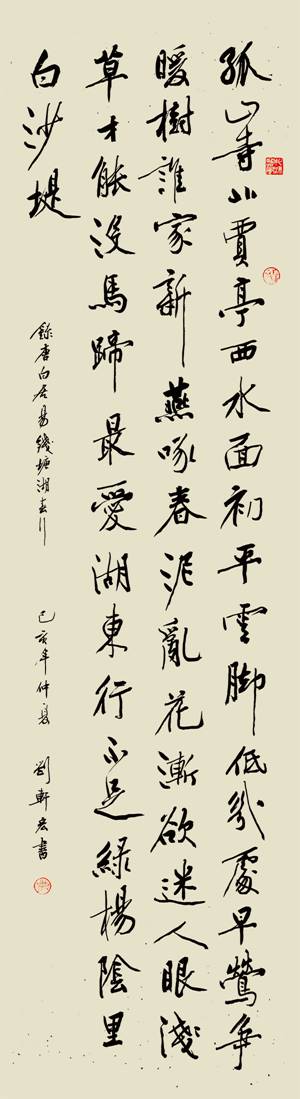 孤山寺北賈亭西水面初平雲脚低幾處早鶯爭
暖樹誰家新燕啄春泥亂花漸欲迷人眼淺
草才能没馬蹄最愛湖東行不足緑楊陰里
白沙堤
錄唐白居易錢塘湖春行 己亥年仲夏 劉軒宏書